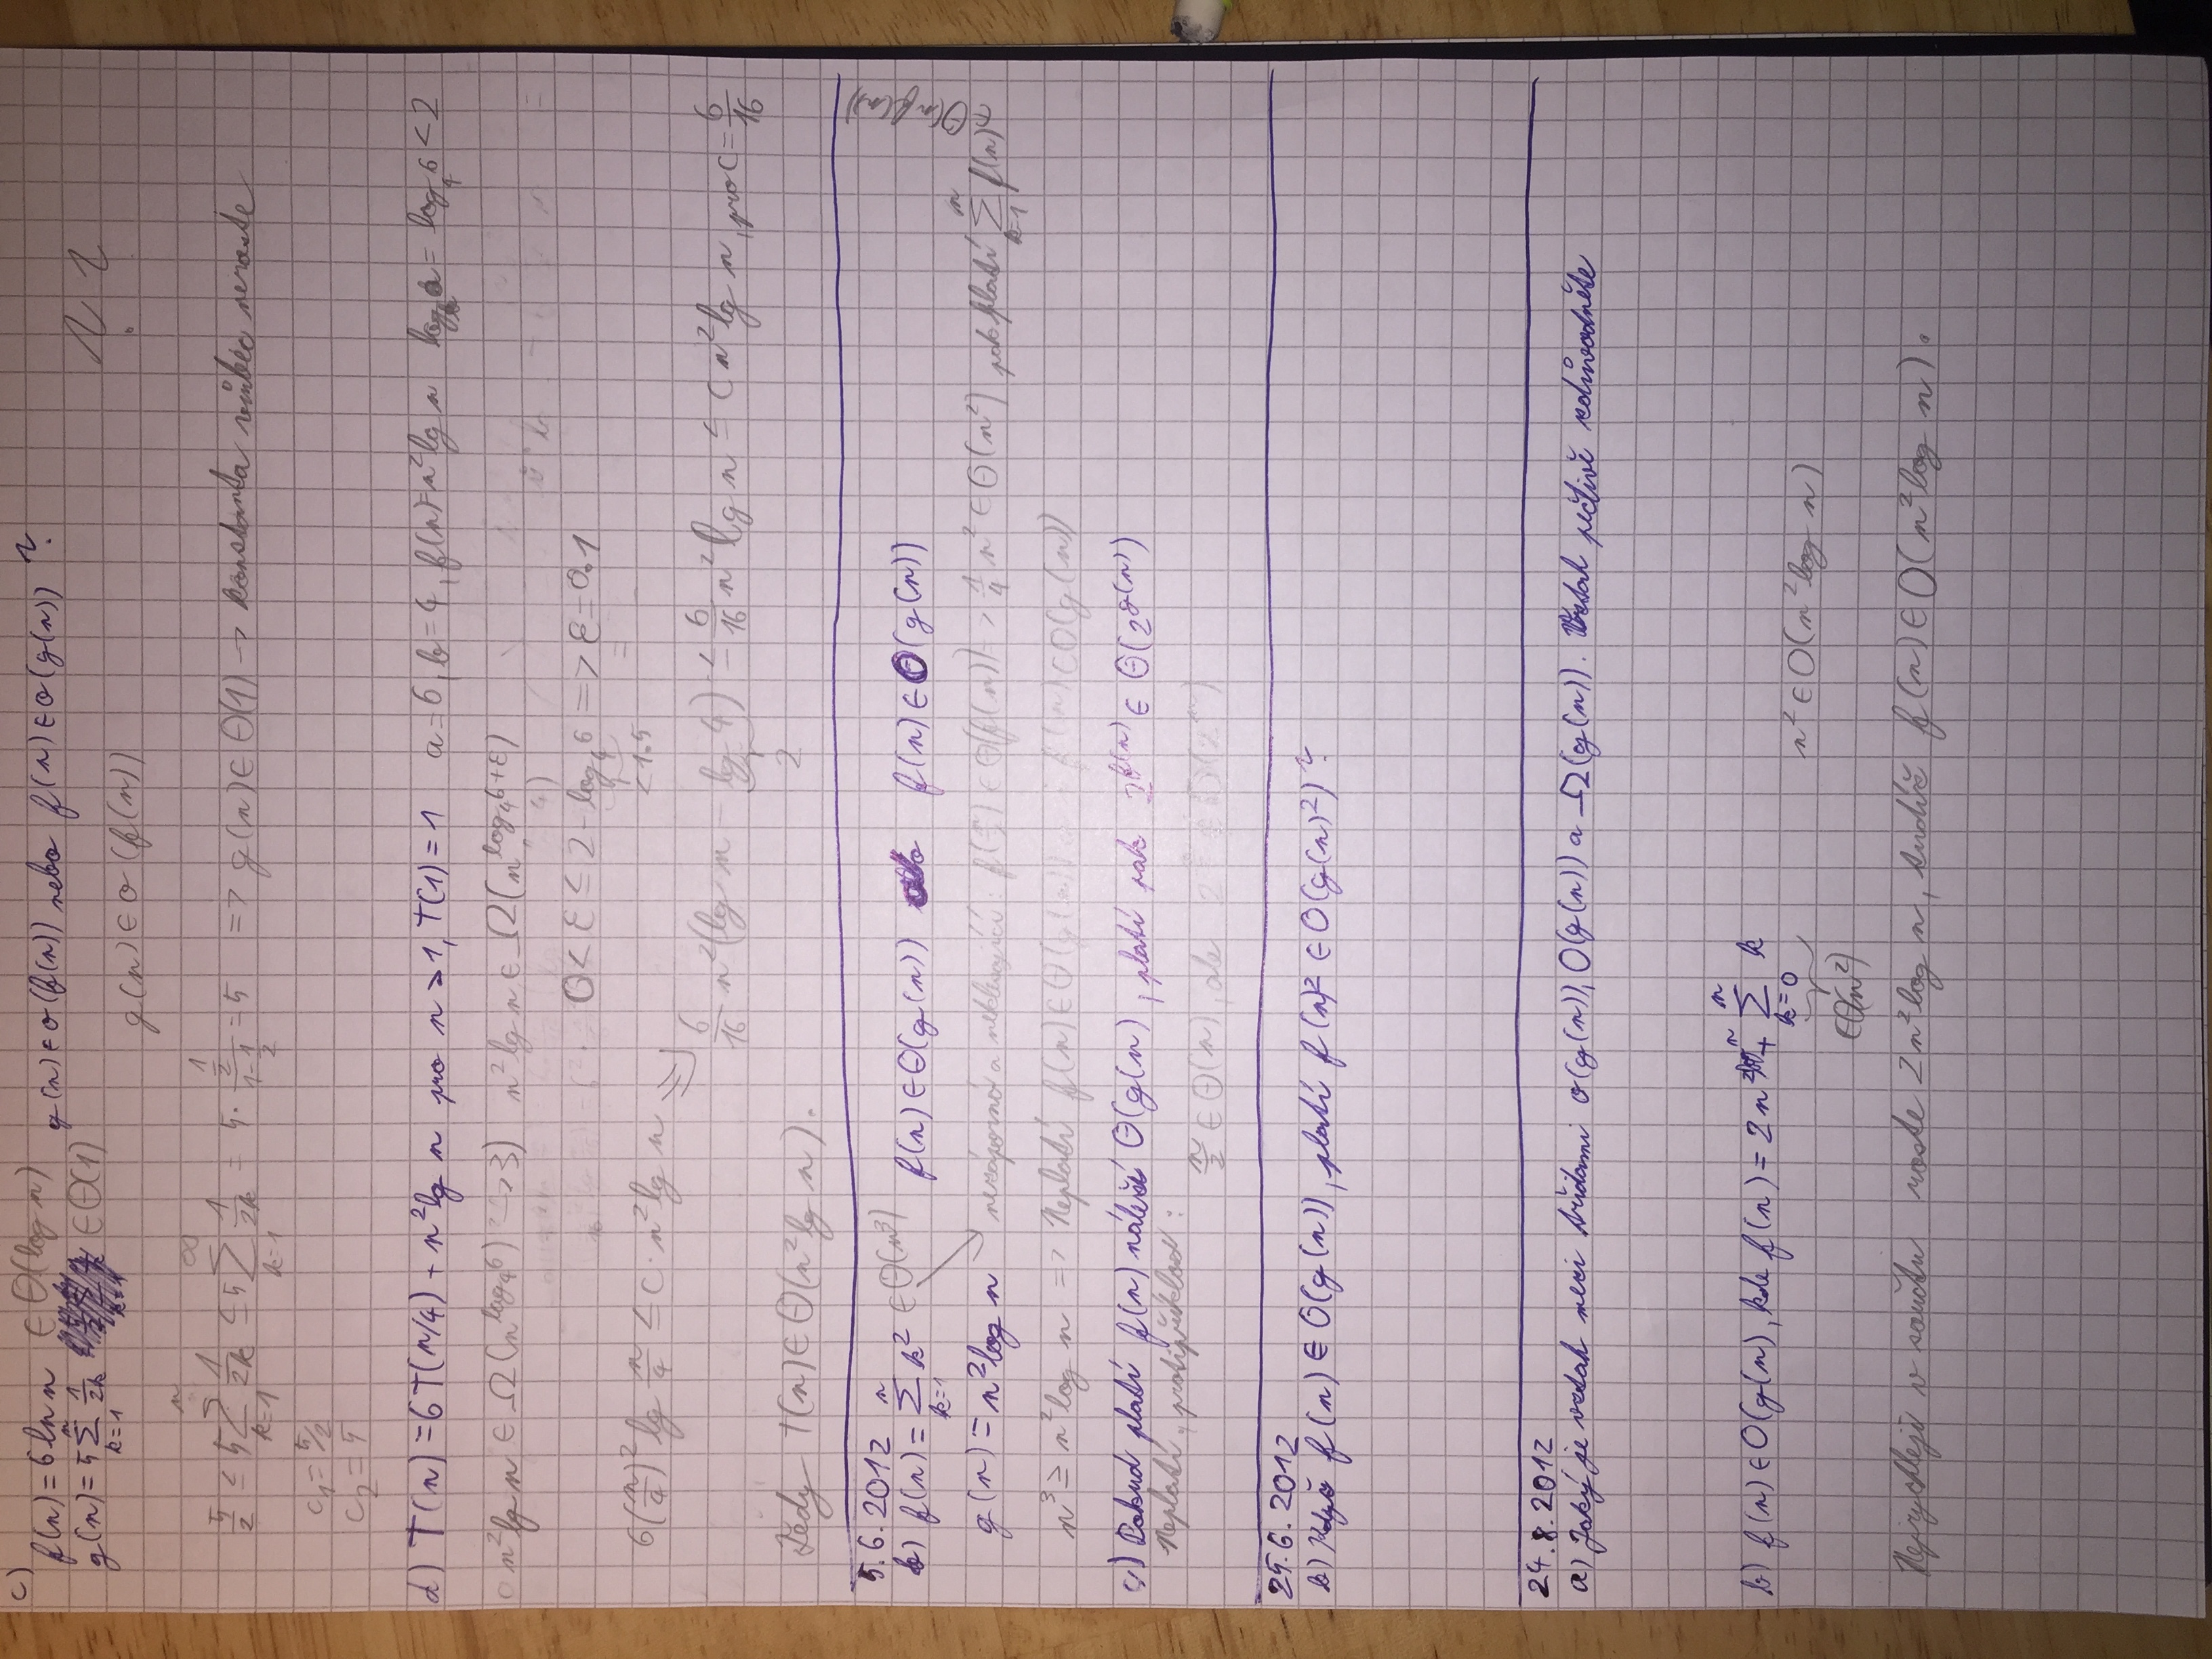 c)
f(n) = 6 ln n ∈ Θ(log n) g(n) ∈ o(f(n)) nebo f(n) ∈ o(g(n)) ?
g(n) = 5 ∑_{k=1}^{n} 1/2k ∈ Θ(1)
g(n) ∈ o(f(n))
5/2 ≤ 5 ∑_{k=1}^{n} 1/2k ≤ 5 ∑_{k=1}^{∞} 1/2k = 5 · (1/2)/(1-1/2) = 5 => g(n) ∈ Θ(1) → konstanta vůbec neroste
c₁ = 5/2
c₂ = 5
d) T(n) = 6T(n/4) + n² lg n pro n > 1, T(1) = 1 a = 6, b = 4, f(n) = n² lg n log_b a = log₄ 6 < 2
n² lg n ∈ Ω(n^{log₄ 6}) => 3) n² lg n ∈ Ω(n^{log₄ 6+ε})
0 < ε ≤ 2 - log₄ 6 => ε = 0.1
< 1.5
6(n/4)² lg n/4 ≤ c · n² lg n
6/16 n² (lg n - lg 4) ≤ 6/16 n² lg n ≤ c n² lg n, pro c = 6/16
2
Tedy T(n) ∈ Θ(n² lg n).
5.6.2012
b) f(n) = ∑_{k=1}^{n} k² ∈ Θ(n³) f(n) ∈ Θ(g(n)) f(n) ∈ O(g(n))
g(n) = n² log n nezáporná a neklesající f(n/2) ∈ Θ(f(n)) => 1/4 n² ∈ Θ(n²) pak platí ∑_{k=1}^{n} f(n) ∈ Θ(n f(n))
n³ ≥ n² log n => Neplatí f(n) ∈ Θ(g(n)) f(n) ∈ O(g(n))
c) Pokud platí f(n) náleží Θ(g(n), platí pak 2^{f(n)} ∈ Θ(2^{g(n)})
Neplatí, protipříklad:
n/2 ∈ Θ(n), ale
25.6.2012
b) Když f(n) ∈ O(g(n)), platí f(n)² ∈ O(g(n)²) ?
24.8.2012
a) Jaký je vztah mezi třídami o(g(n)), O(g(n)) a Ω(g(n)). Vztah pečlivě zdůvodněte
b) f(n) ∈ O(g(n), kde f(n) = 2n² log n + ∑_{k=0}^{n} k
n² ∈ O(n² log n)
∈ Θ(n²)
Nejrychleji v součtu roste 2n² log n, tudíž f(n) ∈ O(n² log n).